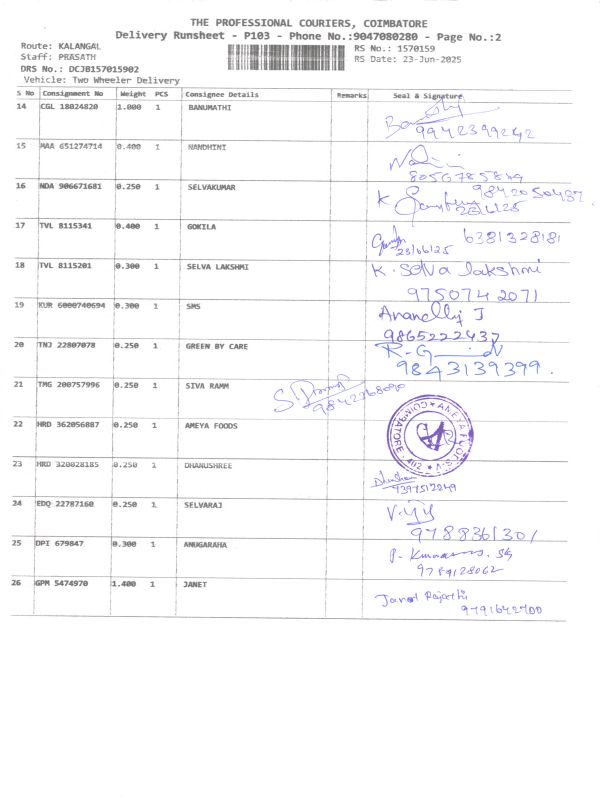 THE PROFESSIONAL COURIERS, COIMBATORE
Delivery Runsheet - P103 - Phone No.:9047080280 - Page No.:2
Route: KALANGAL
RS No.: 1570159
Staff: PRASATH
RS Date: 23-Jun-2025
DRS No.: DCJB157015902
Vehicle: Two Wheeler Delivery
S No Consignment No Weight PCS Consignee Details Remarks Seal & Signature
14 CGL 18024820 1.000 1 BANUMATHI
9942399242
15 MAA 651274714 0.400 1 NANDHINI
8056785849
16 NDA 906671681 0.250 1 SELVAKUMAR
K 9842050487
23/6/25
17 TVL 8115341 0.400 1 GOKILA
6381328181
23/06/25
18 TVL 8115201 0.300 1 SELVA LAKSHMI
K. Selva lakshmi
9750742071
19 KUR 6000740694 0.300 1 SMS
J
9865222437
20 TNJ 22807078 0.250 1 GREEN BY CARE
9843139399.
21 TMG 200757996 0.250 1 SIVA RAMM
22 HRD 362056887 0.250 1 AMEYA FOODS
23 HRD 320028185 0.250 1 DHANUSHREE
9397512249
24 EDQ 22787160 0.250 1 SELVARAJ
9788361301
25 DPI 679847 0.300 1 ANUGARAHA
9789128062
26 GPM 5474970 1.400 1 JANET
Janet
9791642700